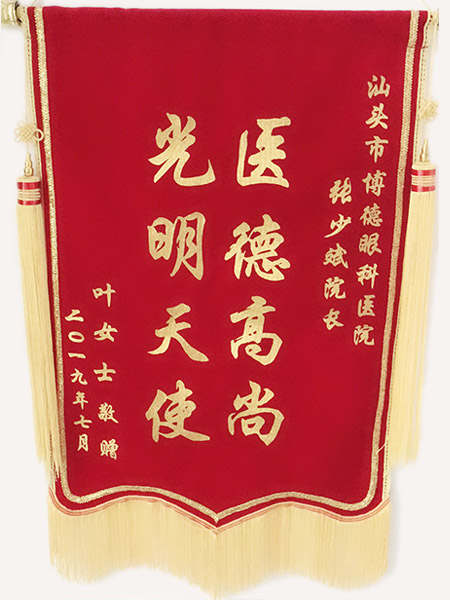 汕头市博德眼科医院
张少斌院长
医德高尚
光明天使
叶女士敬赠
二〇一九年七月